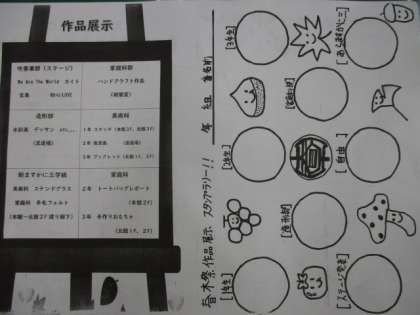 作品展示
吹奏楽部（ステージ）
We Are The World ガイト
音楽 初心LOVE
家庭科部
ハンドクラフト作品
（被服室）
造形部
水彩画 デッサン etc...
（武道場）
美術科
1年 スケッチ（本館2F、北館3F）
2年 鑑賞画 （武道場）
3年 ブックレット（北館1F、2F）
家庭科
2年 トートバッグレポート
（本館2F）
3年 手作りおもちゃ
（北館1F、2F）
美術科 ステンドグラス
家庭科 羊毛フェルト
（本館〜北館2F渡り廊下）
春木祭 作品展示 スタンプラリー!!
年 組 番名前
[3年生]
[2年生]
[1年生]
[家庭科部]
[造形部]
[あさまずかに=]
[自由]
[ステージ発表]
春